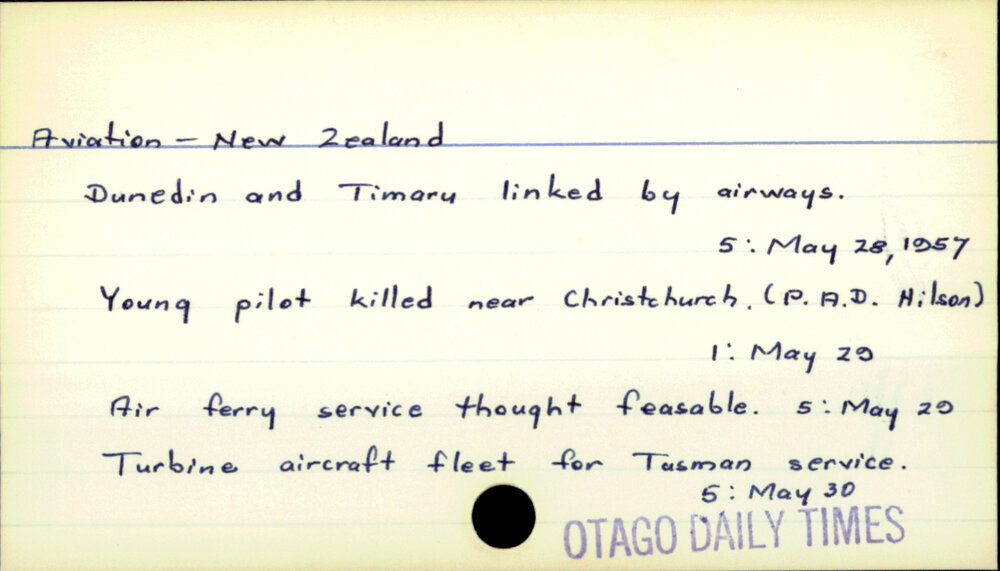 Aviation - New Zealand
Dunedin and Timaru linked by airways.
5: May 28, 1957
Young pilot killed near Christchurch. (P. A.D. Hilson)
1: May 29
Air ferry service thought feasable. 5: May 29
Turbine aircraft fleet for Tasman service.
5: May 30
OTAGO DAILY TIMES